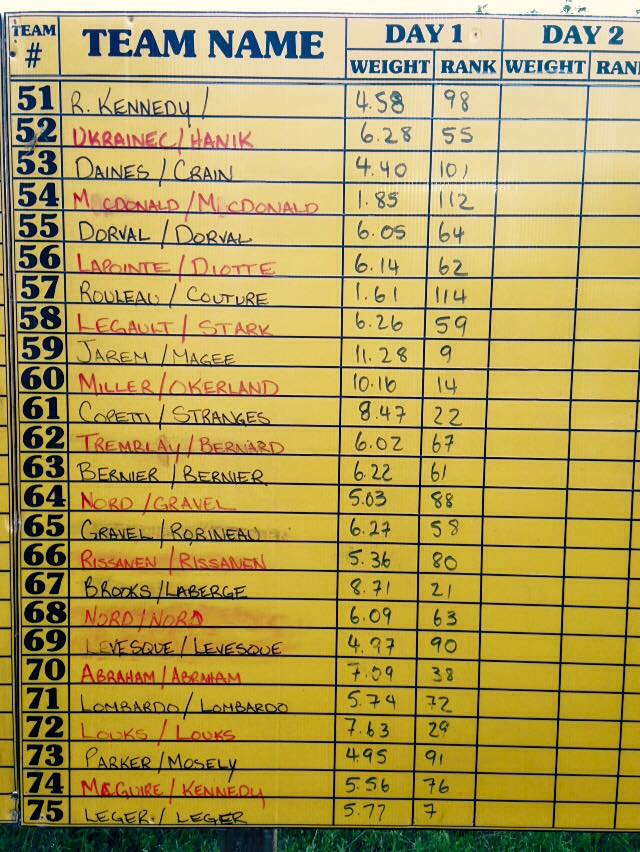 TEAM # TEAM NAME DAY 1 DAY 2
WEIGHT RANK WEIGHT RAN
51 R. KENNEDY / 4.58 98
52 UKRAINEC / HANIK 6.28 55
53 DAINES / CRAIN 4.40 101
54 MCDONALD / MCDONALD 1.85 112
55 DORVAL / DORVAL 6.05 64
56 LAPOINTE / DIOTTE 6.14 62
57 ROULEAU / COUTURE 1.61 114
58 LEGAULT / STARK 6.26 59
59 JAREM / MAGEE 11.28 9
60 MILLER / OKERLAND 10.16 14
61 COPETTI / STRANGES 8.47 22
62 TREMBLAY / BERNARD 6.02 67
63 BERNIER / BERNIER 6.22 61
64 NORD / GRAVEL 5.03 88
65 GRAVEL / ROBINEAU 6.27 58
66 RISSANEN / RISSANEN 5.36 80
67 BROOKS / LABERGE 8.71 21
68 NORD / NORD 6.09 63
69 LEVESQUE / LEVESQUE 4.97 90
70 ABRAHAM / ABRAHAM 7.09 38
71 LOMBARDO / LOMBARDO 5.74 72
72 LOUKS / LOUKS 7.63 29
73 PARKER / MOSELY 4.95 91
74 McGUIRE / KENNEDY 5.56 76
75 LEGER / LEGER 5.77 7